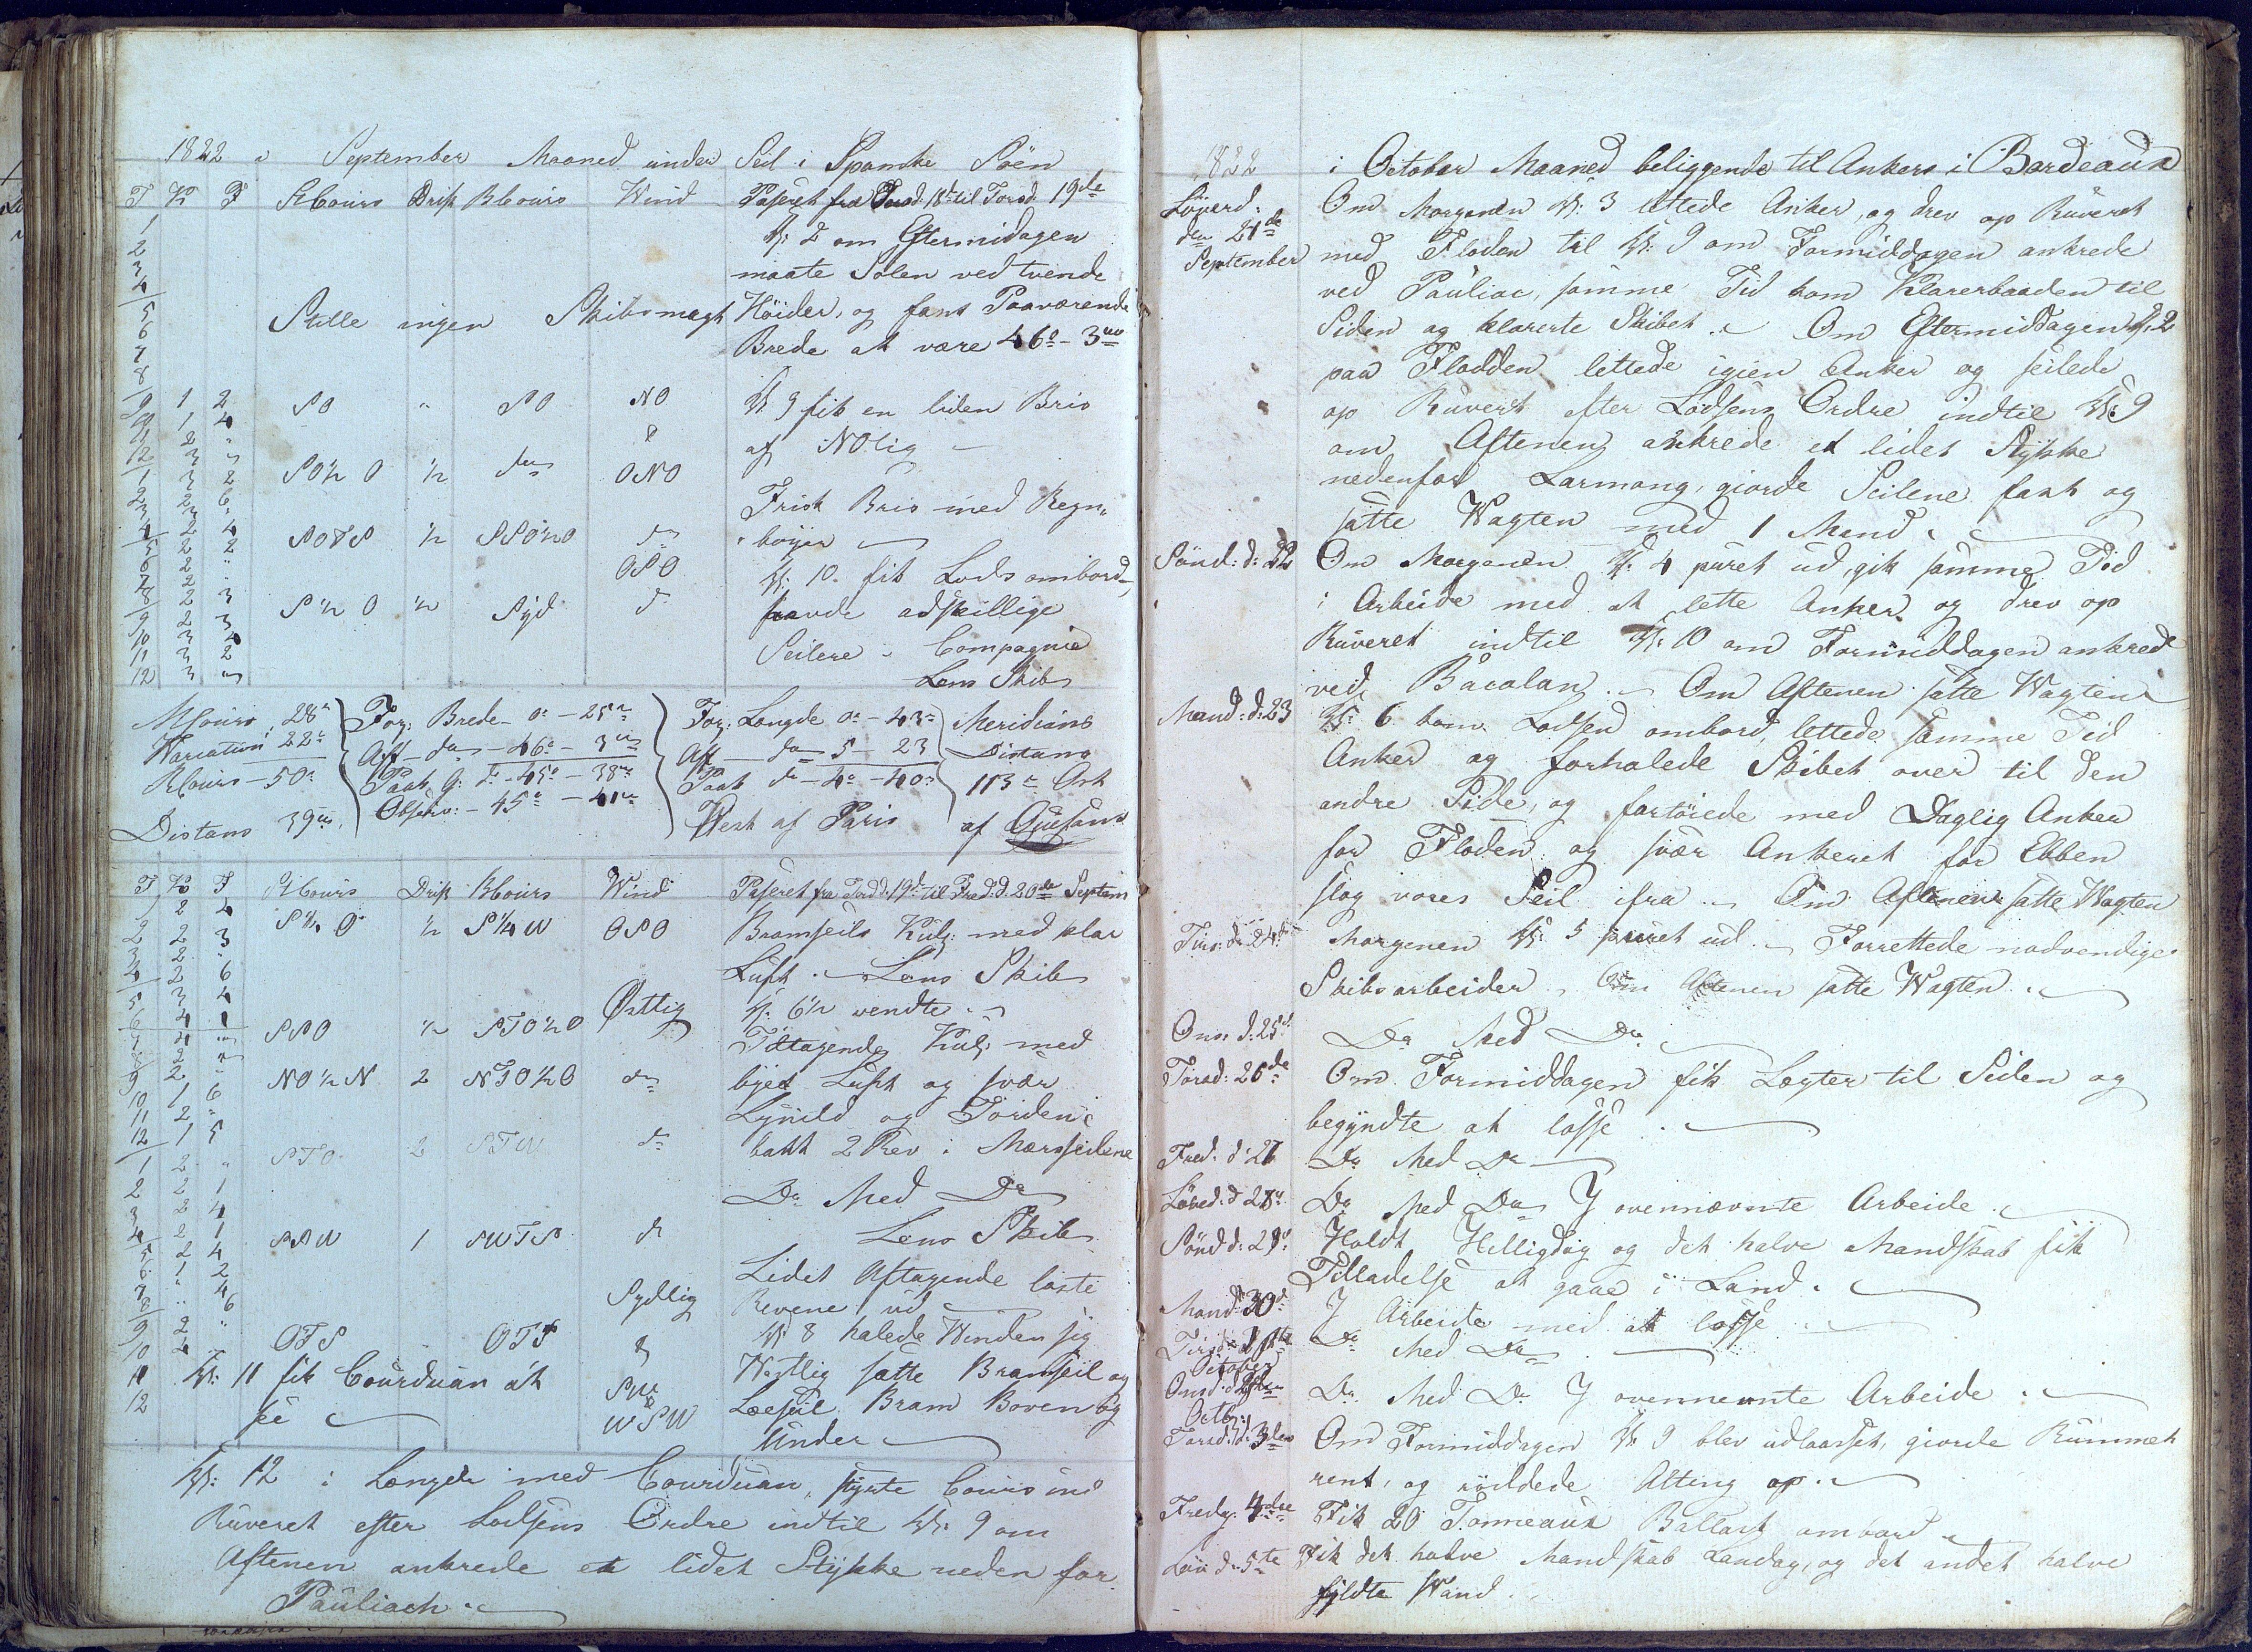 1822 i September Maaned under Seil i Spanske Söen
T K F StCours Drift RCours Wind Paseret fra Onsd 18de til Torsd 19de
1 Kl: 2 om Eftermidagen
2
3 maate Solen ved tvende
4
5 Stille ingen Skibsmagt Höider, og fant Paaværende
6
7 Brede at være 46° - 3m
8
9 1 2 SO " SO NO Kl 9 fik en liden Bris
10 1 4
11 2 " af NOlig
12 3 "
1 3 2 SO½ O ½ do ONO
2 2 6 Frisk Bris med Regn,
3 2 "
4 2 4 SOTS ½ SSO½O do böyer
5 2 2
6 2 " OSO Kl: 10 fik Lods ombord,
7 2 "
8 2 3 S½ O ½ Syd do havde adskillige
9 2 3
10 3 4 Seilere i Compagnie
11 3 2
12 3 " Lens Skib
MCours 28° For: Brede - 0° - 25m For: Længde 0° - 43m Meridians
Variation 22° Aff - do - 46° - 3m Aff - do 5 - 23 Distans
RCours - 50° Paak G: do - 45° - 38m Paak do - 4° - 40m 113m Ost
Distans 39m Observ: - 45° - 41m West af Paris af
T K F StCours Drift RCours Wind Paseret fra Torsd d: 19de til Fred: d: 20de Septem
1 2 4 S½ O ½ S¼W OSO Bramseils Kuly: med klar
2 2 3
3 2 "
4 2 6 Luft. Lens Skib
5 3 4 Östtlig Kl: 6½ vendte
6 4 1
7 4 " SSO ½ STO½O Tiltagende Kul: med
8 2 "
9 2 " NO½N 2 NTO½O do byget Luft og svær
10 1 6
11 2 " Lynild og Torden
12 1 5 STO 2 STW do bakt 2 Rev i Mersseilene
1 2 "
2 2 1 Do Med Do
3 2 4
4 2 1 SSW 1 SWTS do Lens Skib
5 2 4
6 1 2 Lidet Aftagende löste
7 " 4 Sydlig Revene ud
8 " 6
9 2 " OTS " OTS do Kl 8 halede Winden sig
10 2 "
11 Kl: 11 fik Courduan at SW Westlig satte Bramseil og
12 see WSW Læeseil Bram Boven og
Under
Kl: 12 i Længde med Courduan, styrte Cours ind
Ruveret efter Lodsens Ordre indtil Kl: 9 om
Aftenen ankrede et lidet Stykke neden for
Pauliach.
1822 i October Maaned beliggende til Ankers i Bordeaux
Löverd: Om Morgenen Kl: 3 lettede Anker, og drev op Ruveret
den 21de
September med Floden til Kl: 9 om Formiddagen ankrede
ved Pauliac, samme Tid kom Klarerbaaden til
Siden og klarerte Skibet. Om Eftermiddagen Kl: 2
paa Flodden lettede igien Anker og seilede
op Ruveret efter Lodsens Ordre indtil Kl: 9
om Aftenen ankrede et lidet Stykke
nedenfor Larmong, giorde Seilene fast og
satte Wagten med 1 Mand.
Sönd: d: 22 Om Morgenen Kl: 4 puret ud, gik samme Tid
i Arbeide med at lette Anker og drev op
Ruveret indtil Kl: 10 om Formiddagen ankrede
ved Bacalan. Om Aftenen satte Wagten
Mand: d: 23 Kl: 6 kom Lodsen ombord, lettede samme Tid
Anker og forhalede Skibet over til den
andre Side, og fortöiede med Daglig Anker
for Floden og svær Ankeret for Ebben
slog vores Seil ifra. Om Aftenen satte Wagten
Tirs: d: 24de Morgenen Kl: 5 puret ud. Forrettede nødvendige
Skibsarbeider. Om Aftenen satte Wagten.
Ons: d: 25d Do Med Do
Torsd: 26de Om Formiddagen fik Lægter til Siden og
begyndte at losse.
Fred: d: 27 Do Med Do
Löved: d 28de Do Med Do I ovennævnte Arbeide
Sönd d: 29d: Holdt Helligdag og det halve Mandskab fik
Tilladelse at gaae i Land.
Mand: 30d: I Arbeide med at losse
Tirsd: 1ste Do Med Do
October
Onsd: d 2den Do Med Do I ovennemte Arbeide
Octb:
Torsd: d: 3den Om Formiddagen Kl 9 blev udlosset, giorde Rummet
rent, og röddede Alting op.
Fredg: 4de Fik 20 Tonneaux Ballast ombord
Löv d: 5te Fik det halve Mandskab Landag, og det andet halve
fyldte Wand.